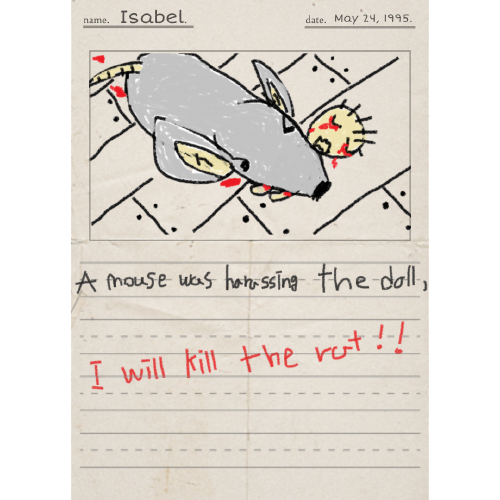 name. Isabel.
date. May 24, 1995.
A mouse was harassing the doll,
I will kill the rat!!